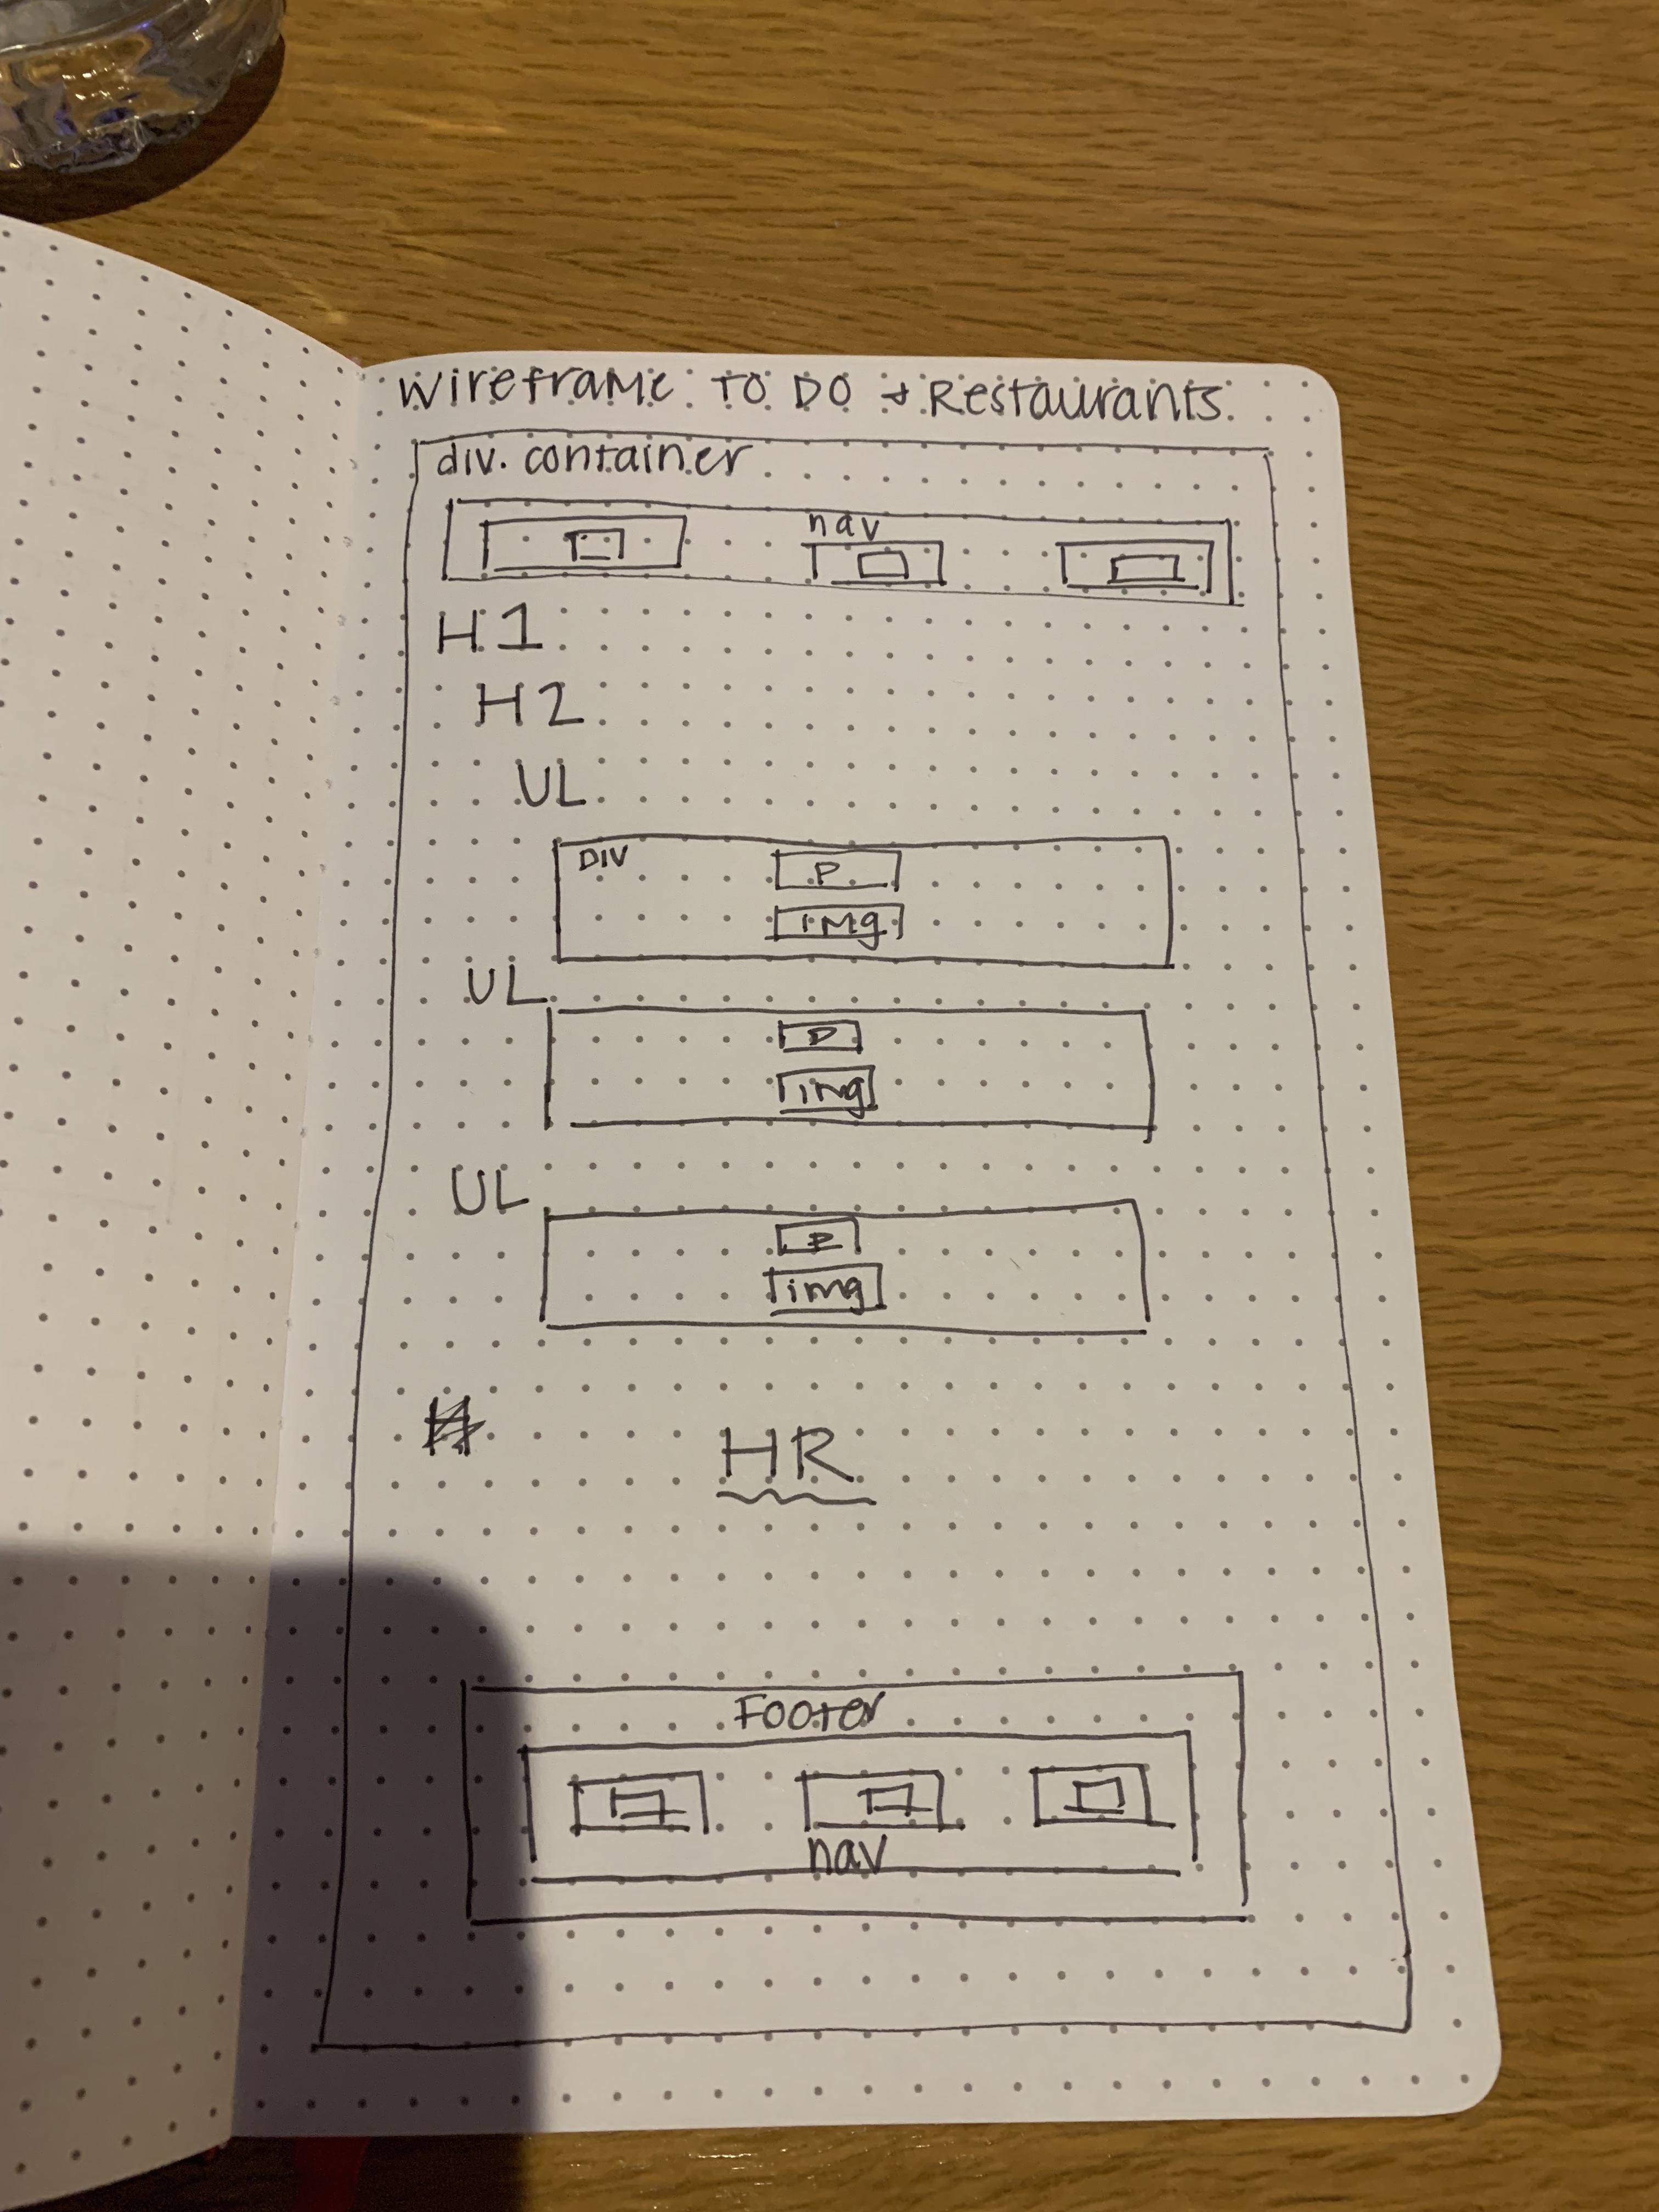 Wireframe TO DO + Restaurants
div. container
nav
H1
H2
UL
DIV
P
img
UL
P
img
UL
P
img
HR
Footer
nav